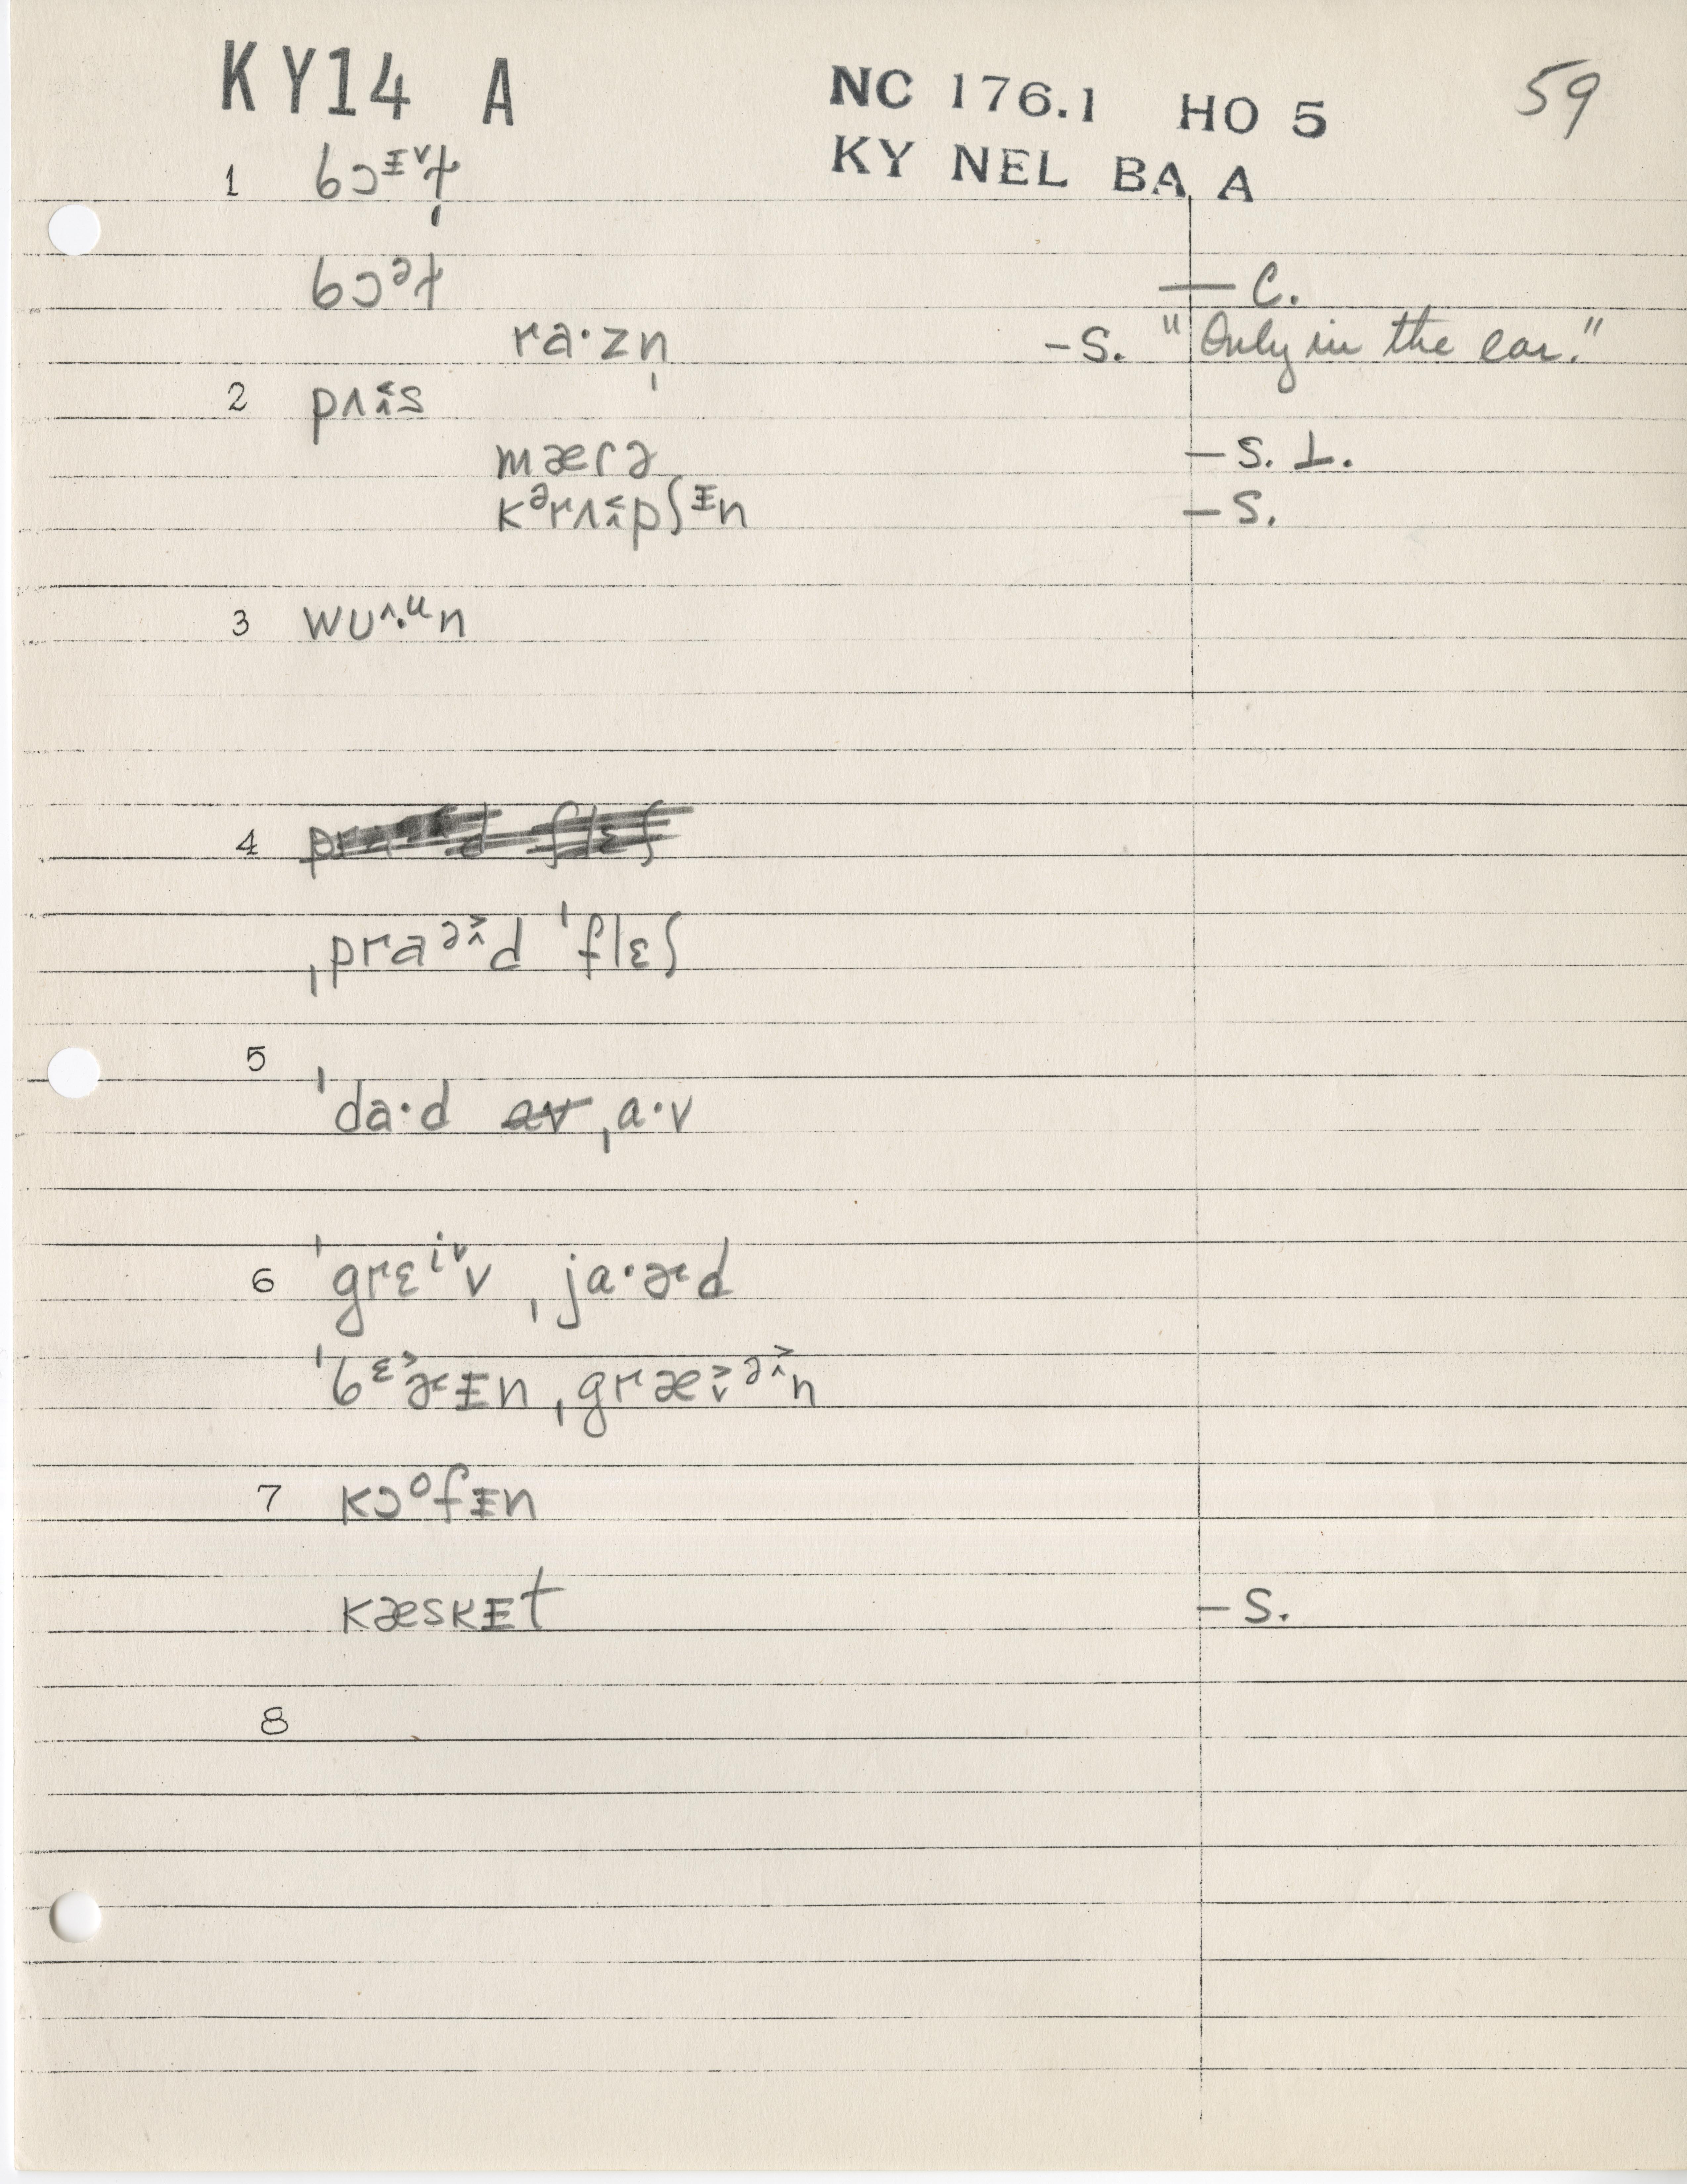 KY14 A
NC 176.1 HO 5
59
KY NEL BA A
1 bɔᵻ˅ɫ
bɔᵊɫ — C.
ra·zn̩ – S. "Only in the ear."
2 pʌɪs
mærə – S. L.
kᵊrʌɪpʃᵻn – S.
3 wuˆ·ᵘn
4
ˌpraᵊɪd ˈflɛʃ
5
ˈda·d ˌɑ·v
6 ˈgrɛⁱ˅v ˌjɑ·ɚd
ˈbɛɚᵻn ˌgræɪᵊɪn
7 kɔᵒfᵻn
kæskᵻt – S.
8